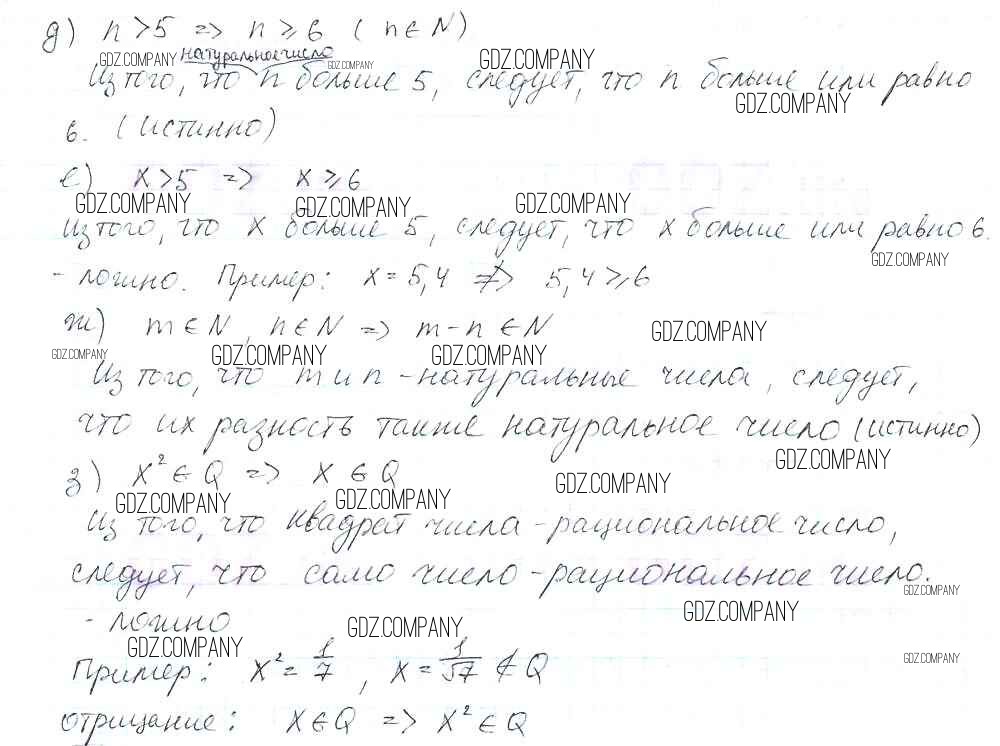 д) n > 5 => n ⩾ 6 ( n ∈ N )
GDZ.COMPANY натуральное число GDZ.COMPANY GDZ.COMPANY
Из того, что n больше 5, следует, что n больше или равно
GDZ.COMPANY
6. (истинно)
е) x > 5 => x ⩾ 6
GDZ.COMPANY GDZ.COMPANY GDZ.COMPANY
Из того, что x больше 5, следует, что x больше или равно 6.
GDZ.COMPANY
- ложно. Пример: x = 5,4 ≠> 5,4 ⩾ 6
ж) m ∈ N, n ∈ N => m - n ∈ N GDZ.COMPANY
GDZ.COMPANY GDZ.COMPANY GDZ.COMPANY
Из того, что m и n - натуральные числа, следует,
что их разность также натуральное число (истинно)
GDZ.COMPANY
з) x² ∈ Q => x ∈ Q GDZ.COMPANY
GDZ.COMPANY GDZ.COMPANY
Из того, что квадрат числа - рациональное число,
следует, что само число - рациональное число.
GDZ.COMPANY
- ложно GDZ.COMPANY GDZ.COMPANY
GDZ.COMPANY GDZ.COMPANY
Пример: x² = 1/7, x = 1/√7 ∉ Q
отрицание: x ∈ Q => x² ∈ Q